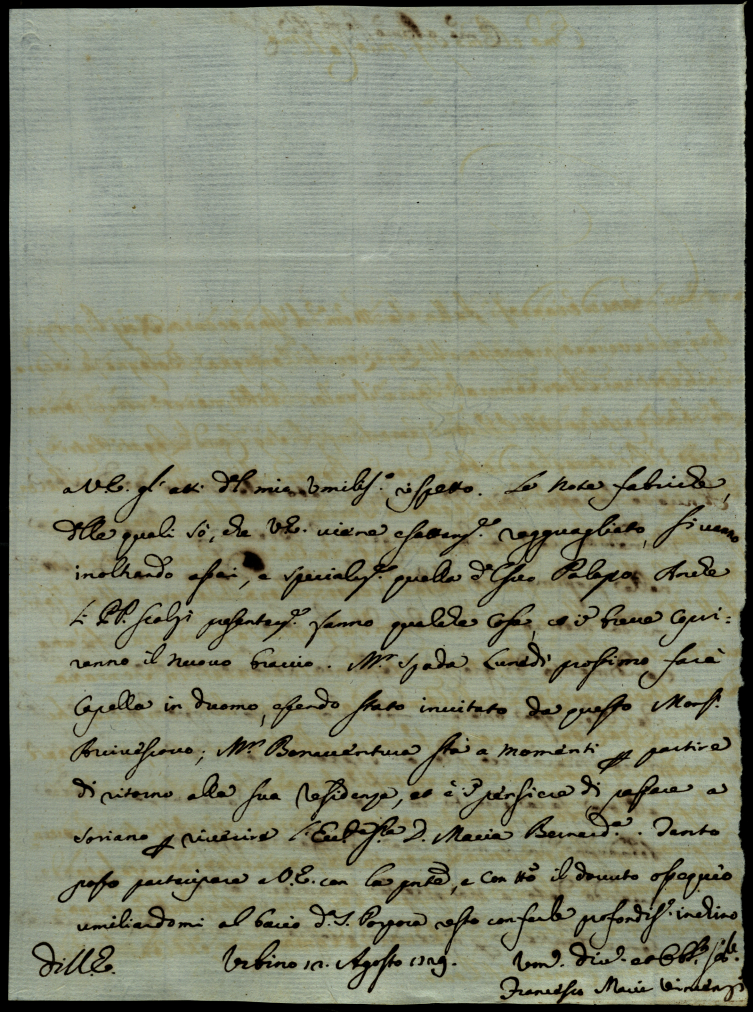 a V.E. gl'atti del mio Umiliss.o rispetto. Le note fabriche,
delle quali sò, che V.E. viene esattam.te ragguagliata, si vanno
inoltrando assai, e specialm.te quella di Palazzo. Anche
li PP. Scalzi presentem.te fanno qualche cosa, et in breve copri=
ranno il nuovo braccio. Mr. Spada Lunedì prossimo farà
Capella in duomo, essendo stato invitato da questo Mons.r
Arcivescovo; Mr. Bonaventura stà a momenti per partire
di ritorno alla sua residenza, et è in pensiere di passare a
Soriano per riverire l'Ecc.ma D. Maria Bernard.a. Tanto
posso participare a V.E. con la pnte, e con tto il dovuto ossequio
umiliandomi al bacio d.a S. Porpora resto con farle profondiss.o inchino
Di V.E.
Urbino 12. Agosto 1729.
Um.o Div.o et Obbl.o
Francesco Maria